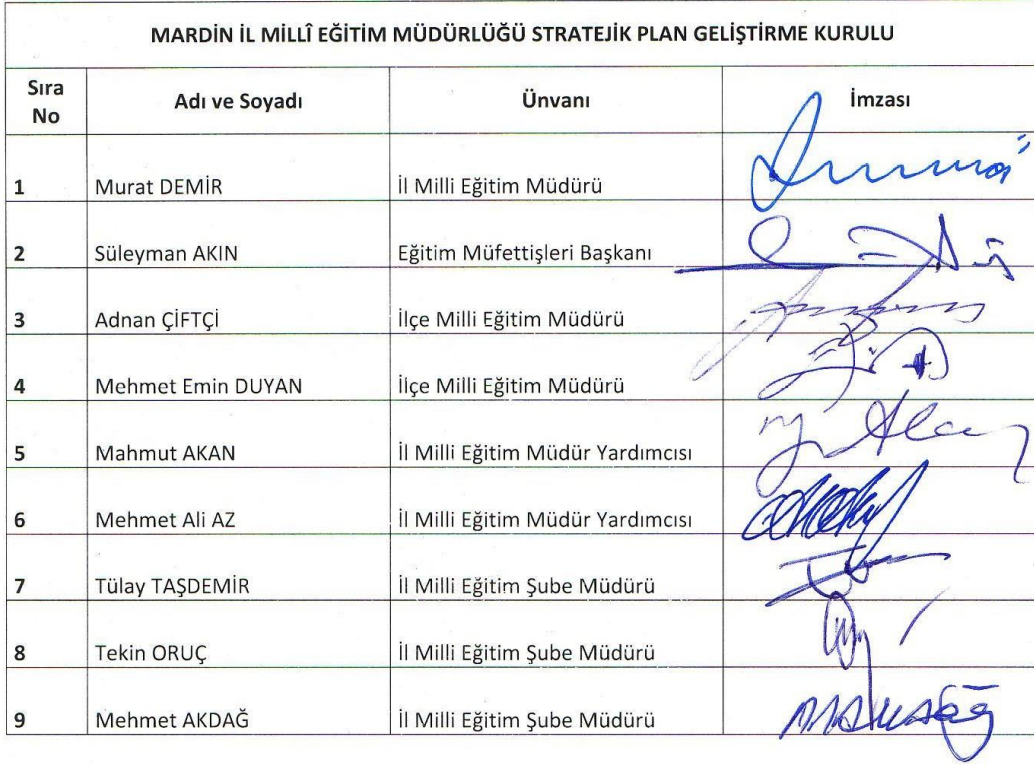 MARDİN İL MİLLÎ EĞİTİM MÜDÜRLÜĞÜ STRATEJİK PLAN GELİŞTİRME KURULU
Sıra No Adı ve Soyadı Ünvanı İmzası
1 Murat DEMİR İl Milli Eğitim Müdürü
2 Süleyman AKIN Eğitim Müfettişleri Başkanı
3 Adnan ÇİFTÇİ İlçe Milli Eğitim Müdürü
4 Mehmet Emin DUYAN İlçe Milli Eğitim Müdürü
5 Mahmut AKAN İl Milli Eğitim Müdür Yardımcısı
6 Mehmet Ali AZ İl Milli Eğitim Müdür Yardımcısı
7 Tülay TAŞDEMİR İl Milli Eğitim Şube Müdürü
8 Tekin ORUÇ İl Milli Eğitim Şube Müdürü
9 Mehmet AKDAĞ İl Milli Eğitim Şube Müdürü